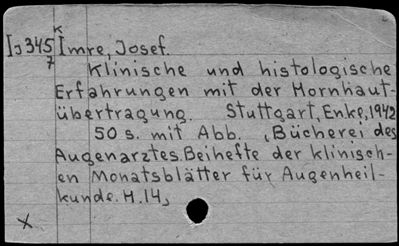 K
I 345 Imre, Josef.
7 Klinische und histologische
Erfahrungen mit der Hornhaut-
übertragung. Stuttgart, Enke, 1942
50 s. mit Abb. (Bücherei des
Augenarztes. Beihefte der klinisch-
en Monatsblätter für Augenheil-
kunde. H. 14)
x